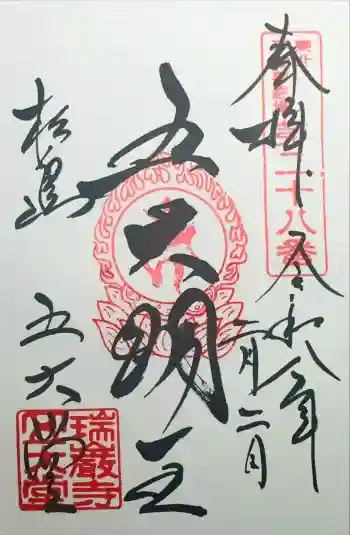 奉拝 令和八年
二月二日
五大明王
松島
五大堂
瑞巌寺
五大堂